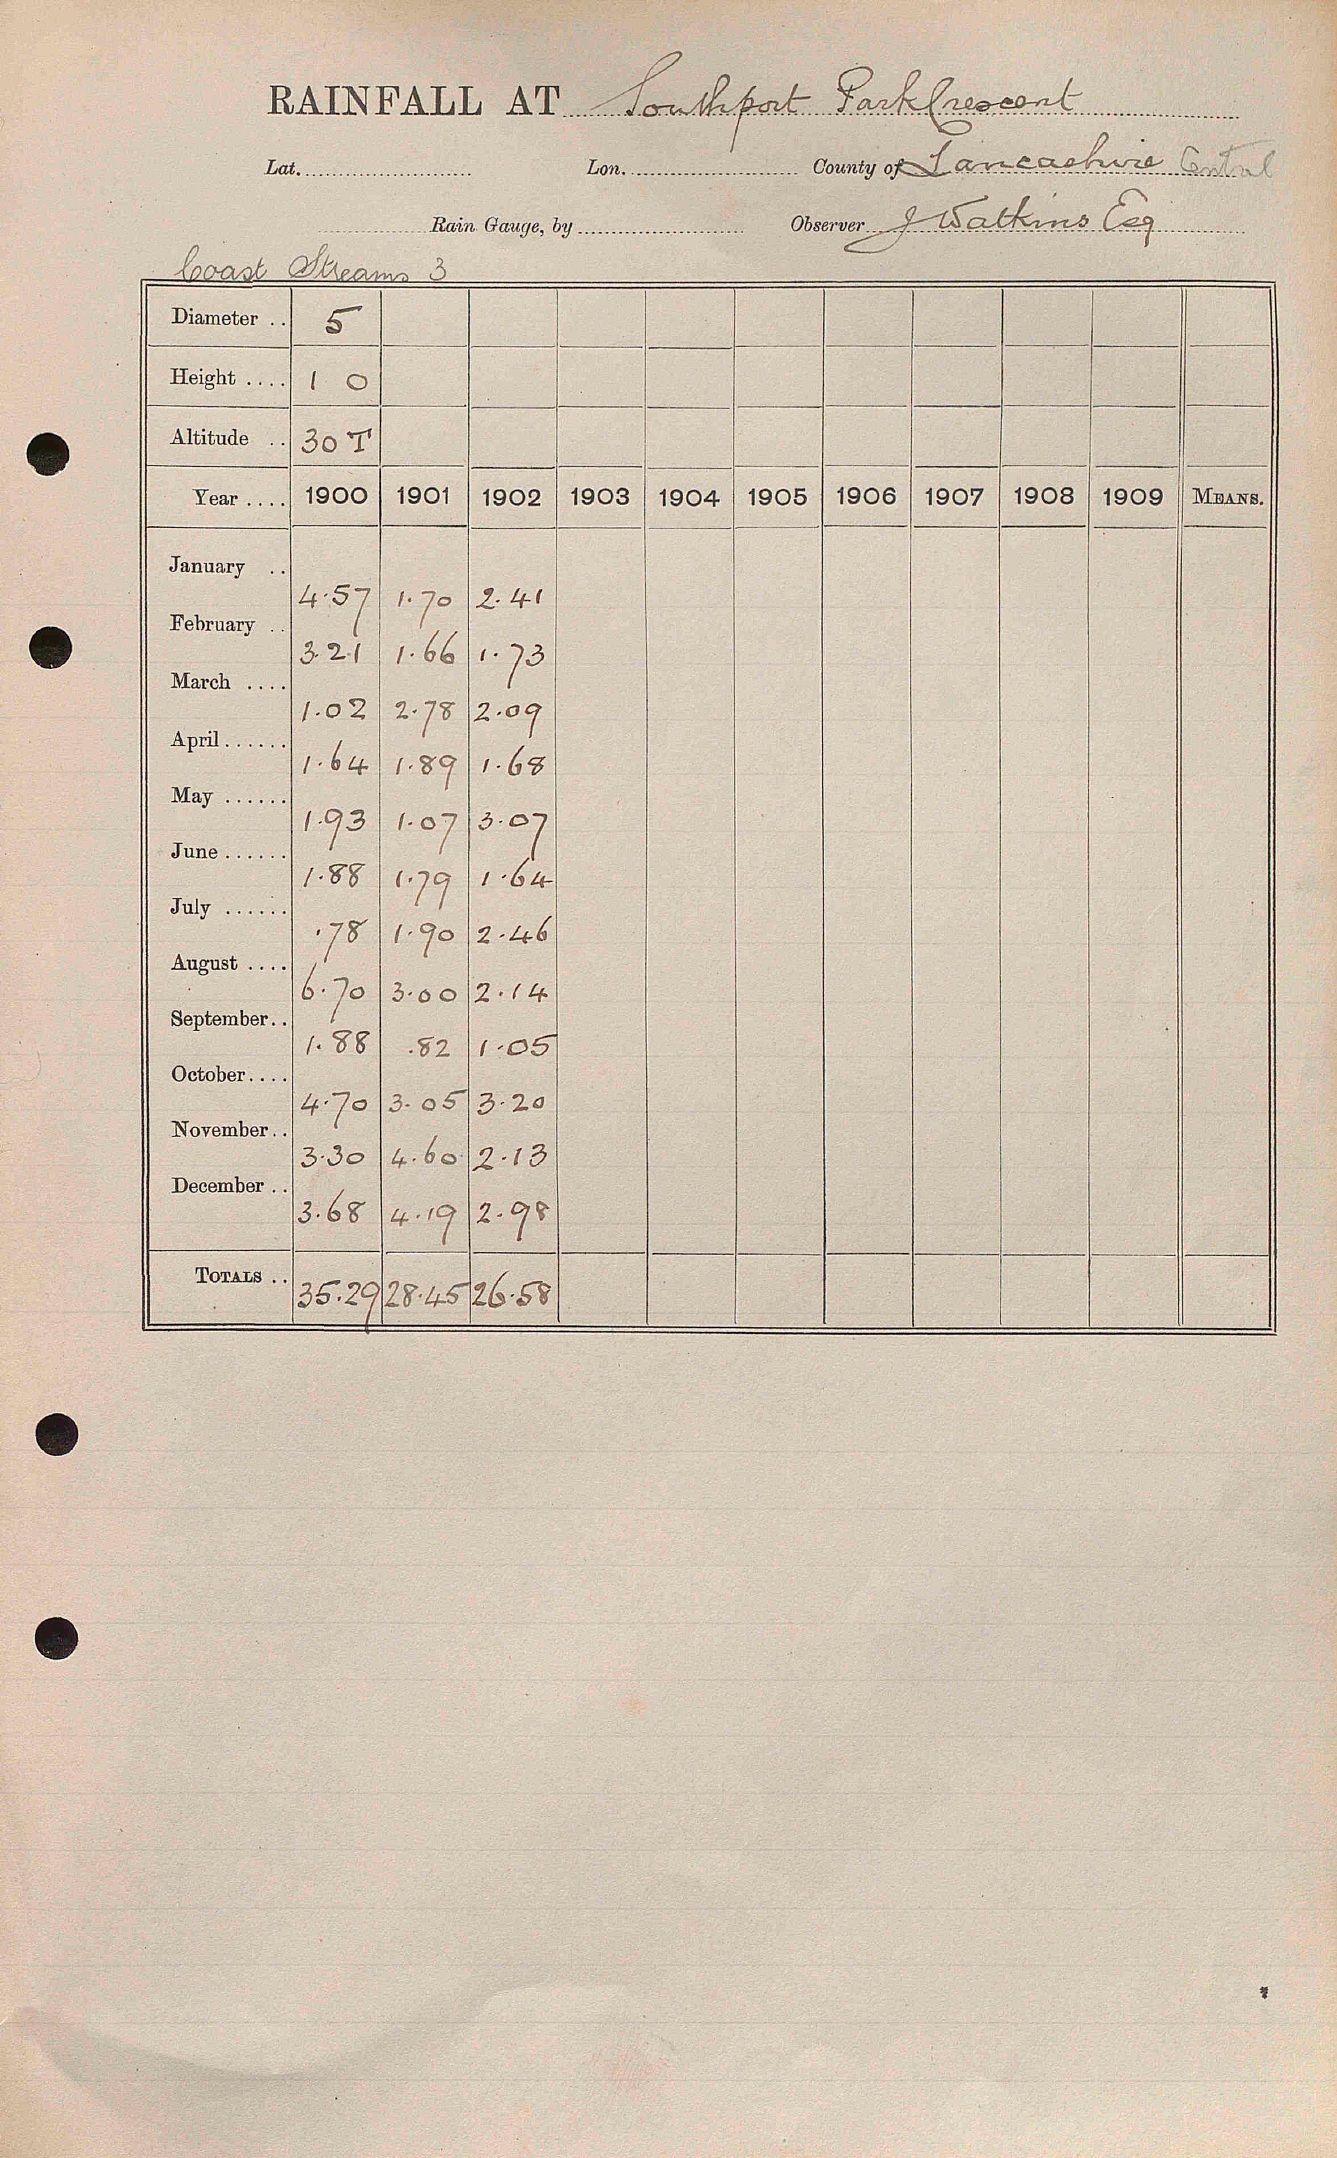 RAINFALL AT Southport Park Crescent
Lat. Lon. County of Lancashire Central
Rain Gauge, by Observer J Watkins Esq
Coast Streams 3
Diameter .. 5
Height .... 1 0
Altitude .. 30 T
Year .... 1900 1901 1902 1903 1904 1905 1906 1907 1908 1909 MEANS.
January .. 4.57 1.70 2.41
February .. 3.21 1.66 1.73
March .... 1.02 2.78 2.09
April...... 1.64 1.89 1.68
May ...... 1.93 1.07 3.07
June...... 1.88 1.79 1.64
July ...... .78 1.90 2.46
August .... 6.70 3.00 2.14
September.. 1.88 .82 1.05
October.... 4.70 3.05 3.20
November.. 3.30 4.60 2.13
December .. 3.68 4.19 2.98
TOTALS .. 35.29 28.45 26.58